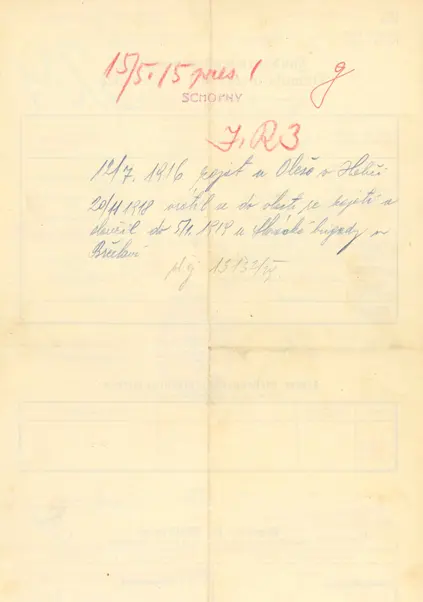 15/5. 15 pres. 1 g
SCHOPNY
J.R3
12/7. 1916 zajat u Oleso v Haliči
20/11 1918 vrátil se do vlasti ze zajetí a
sloužil do 5/1. 1919 u Slovácké brigády v
Břeclavi